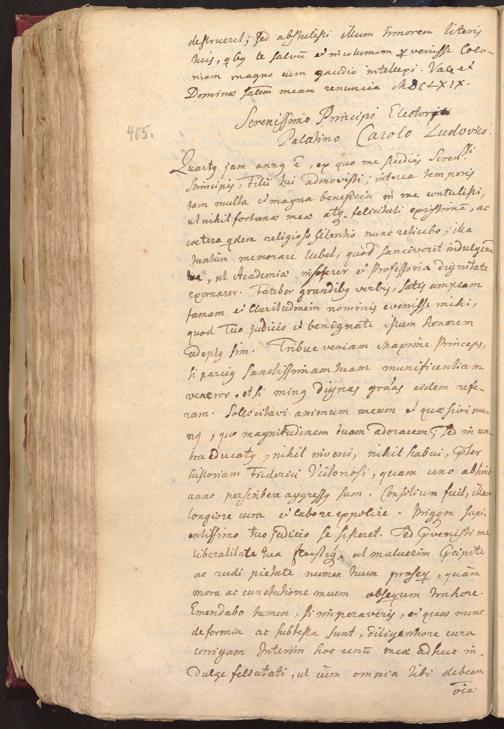 destrueret; sed abstulisti illum timorem literis
tuis, qbs te salvū et incolumem pvenisse Colo-
niam magno cum gaudio intellexi. Vale et
Dominæ salutem meam renuncia MDCLXIX.
Serenissimo Principi Electori
405. Palatino Carolo Ludovico.
Quartus jam annus ē, ex quo me studiis Sereniss.
Principis, Filii tui admovisti; interea temporis
tam multa et magna beneficia in me contulisti,
ut nihil fortunæ meæ atq felicitati, ac
cætera qdem religioso silentio nunc relicebo; illa
tantum memorare lubet, quod sanciverit indulgen
tua, ut Academiæ insererer et Professoria dignitate
exornarer. Fatebor grandibus verbis, satis amplam
famam et claritudinem nominis evenisse mihi,
quod Tuo judicio et benignitate istum honorem
adeptus sim. Tribue veniam Maxime Princeps,
si parcius sanctissimam tuam munificentiam
veneror, etsi minus dignas grãs eidem refe-
ram. Sollicitavi animum meum et quæsivi mu-
nus, quo magnitudinem tuam adorarem; sed in um-
bra ducatus, nihil inveni, nihil habui, pter
historiam Friderici Victoriosi, quam uno abhinc
anno perscribere aggressus sum. Consilium fuit, illam
longiore cura et labore expolire, priusquam sapi
entissimo tuo judicio se sisteret. Sed pvenisti me
liberalitate tua, ut maluerim præcipite
ac rudi pietate numen tuum prosequi, quàm
mora ac cunctatione meum obsequium trahere
Emendabo tamen, si imperaveris, et quæ nunc
deformia ac subtesta sunt, diligentiore cura
corrigam Interim hoc meæ adhuc in-
dulge felicitati, ut cùm omnia tibi debeam
oia